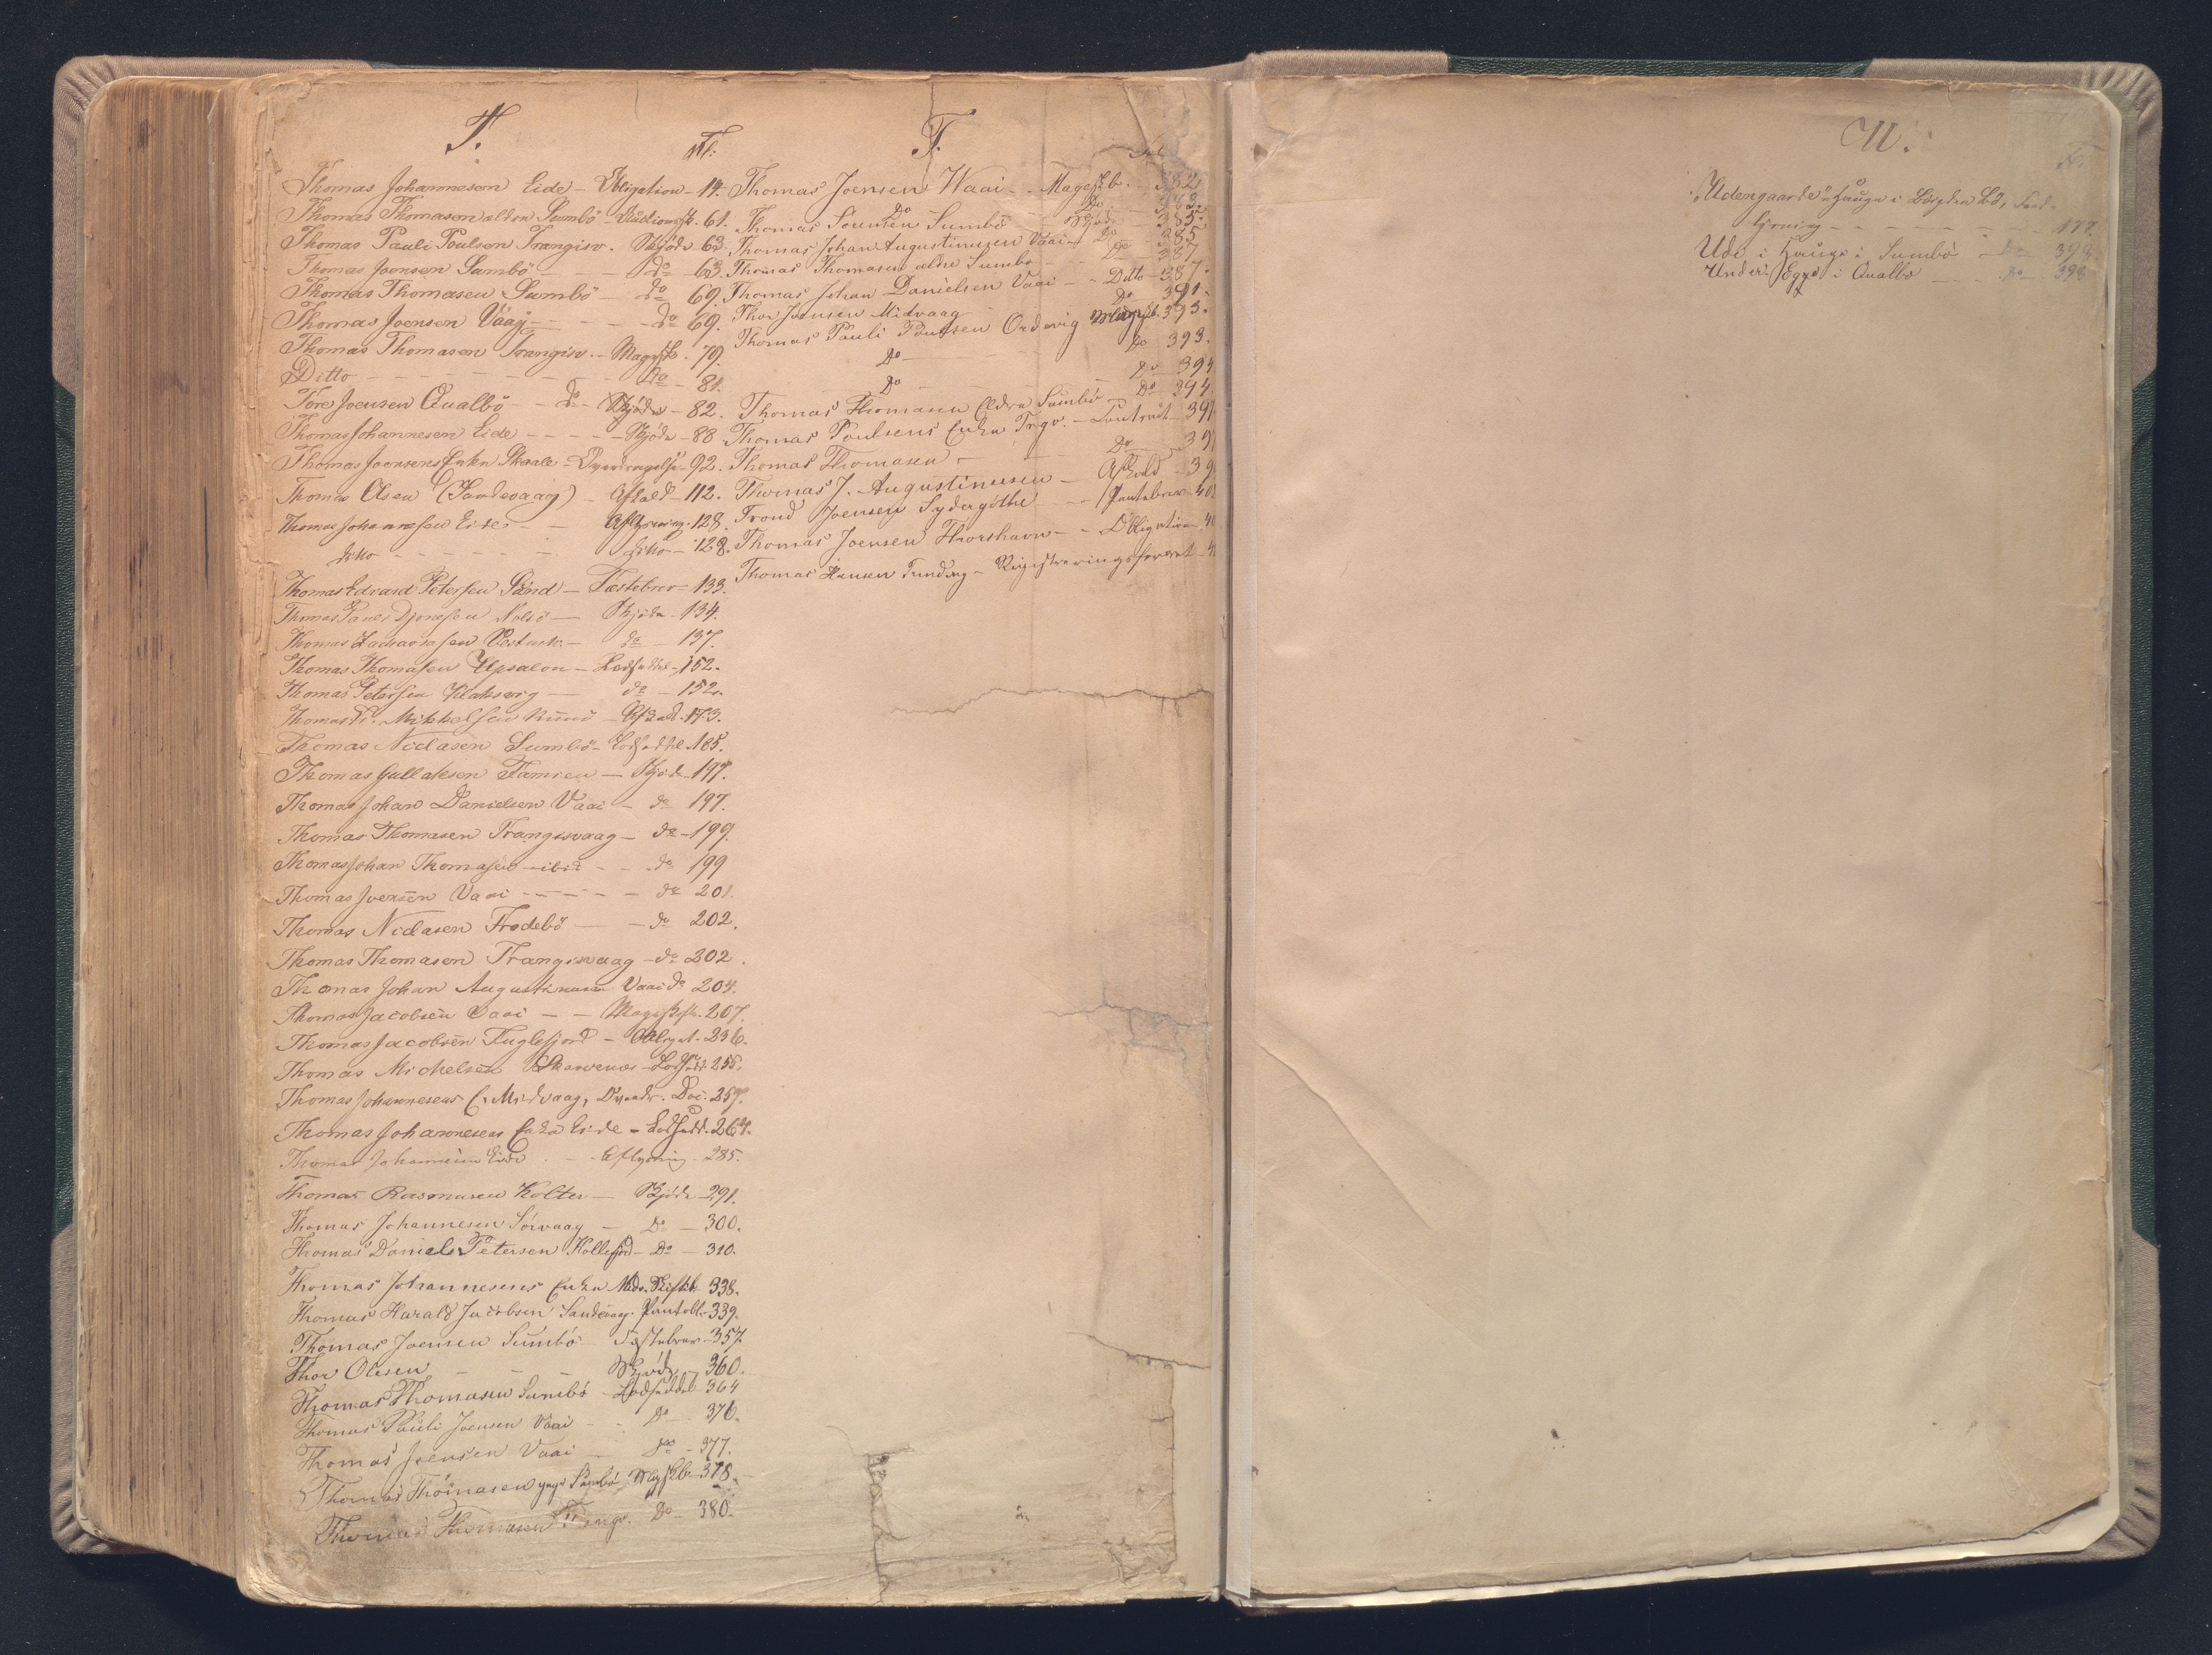 T.
Fol:
Thomas Johannesen Eide - Obligation - 14.
Thomas Thomasen alden Sumbö - Auctionssk. 61.
Thomas Pauli Poulsen Trangisv. Skjöde 63.
Thomas Joensen Sumbö - do - 63.
Thomas Thomasen Sumbö - do 69.
Thomas Joensen Vaaj - do 69.
Thomas Thomasen Trangisv. - Mageskb. 79.
Ditto - do - 81.
Tore Joensen Qualbö - do - Skjöde - 82.
Thomas Johannesen Eide - Skjöde - 88
Thomas Joensens Enke Skaale - 92.
Thomas Olsen (Sandevaag) - Afkald - 112.
Thomas Johannesen Eide - Aflysning - 128.
ditto - ditto - 128.
Thomas Edvard Petersen Sand - Fæstebrev - 133.
Thomas Paul Djonesen Nolsö - Skjöde - 134.
Thomas Zachariasen Vestmh. - do - 137.
Thomas Thomasen Ypsalon - Lodseddel - 152.
Thomas Petersen Klaksvig - do - 152.
Thomas Mikkelsen Kunö - Afkald - 173.
Thomas Niclasen Sumbö - Lodseddel 185.
Thomas Gullaksen Famien - Skjöde 197.
Thomas Johan Danielsen Vaai - do 197.
Thomas Thomasen Trangisvaag - do - 199.
Thomas Johan Thomasen - ibid - do 199
Thomas Joensen Vaai - do 201.
Thomas Niclasen Frodebö - do 202.
Thomas Thomasen Trangisvaag - do 202.
Thomas Johan Augustinusen Vaai do 204.
Thomas Jacobsen Vaai - Mageskb. 207.
Thomas Jacobsen Fuglefjord - Obligat. 236.
Thomas Michelsen Skarvenæs - Lodsedd 255.
Thomas Johannesens E. Midvaag, Doc. 257.
Thomas Johannesens Enke Eide - Lodsedd. 264.
Thomas Johannesen Eide - Aflysning 285.
Thomas Rasmusen Kolter - Skjöde 291.
Thomas Johannesen Sörvaag - Do - 300.
Thomas Daniel Petersen Kollefjord - Do - 310.
Thomas Johannesens Enke Midv. Skiftebr 338.
Thomas Harald Jacobsen Sandevaag. Pantobl. 339.
Thomas Joensen Sumbö - Fæstebrev - 357.
Thor Olesen - Skjöde - 360.
Thomas Thomasen Sumbö - Lodseddel 364
Thomas Pauli Joensen Vaai - Do - 376.
Thomas Joensen Vaai - Do - 377.
Thomas Thomasen yngr Sumbö Magskb - 378.
Thomas Thomasen Trangv. Do - 380.
T.
Thomas Joensen Waai - Mageskb. 382
Do - Do 383.
Thomas Joensen Sumbö - Skjöde 385.
Thomas Johan Augustinusen Vaai - Do 385
Thomas Thomasen ældre Sumbö - Do 387
Thomas Johan Danielsen Vaai - Ditto 387.
Thor Joensen Midvaag - Do - 391.
Thomas Pauli Poulsen Ordevig Mageskb. 393.
Do - Do 393.
Do - Do 394
Thomas Thomasen Ældre Sumbö - Do 394
Thomas Poulsens Enke Trgv. - Contract
Thomas Thomasen - Do
Thomas J. Augustinusen - Afkald
Trond Joensen Sydergöthe - Pantebrev
Thomas Joensen Thorshavn - Obligation
Thomas Hansen Funding - Registreringsforret
U.
Fol.
"Udengaarde" Hauge i Bö,
lysning - 177.
Ude i Hauge i Sumbö - Do - 393.
Under Egge i Qualbö - Do - 398